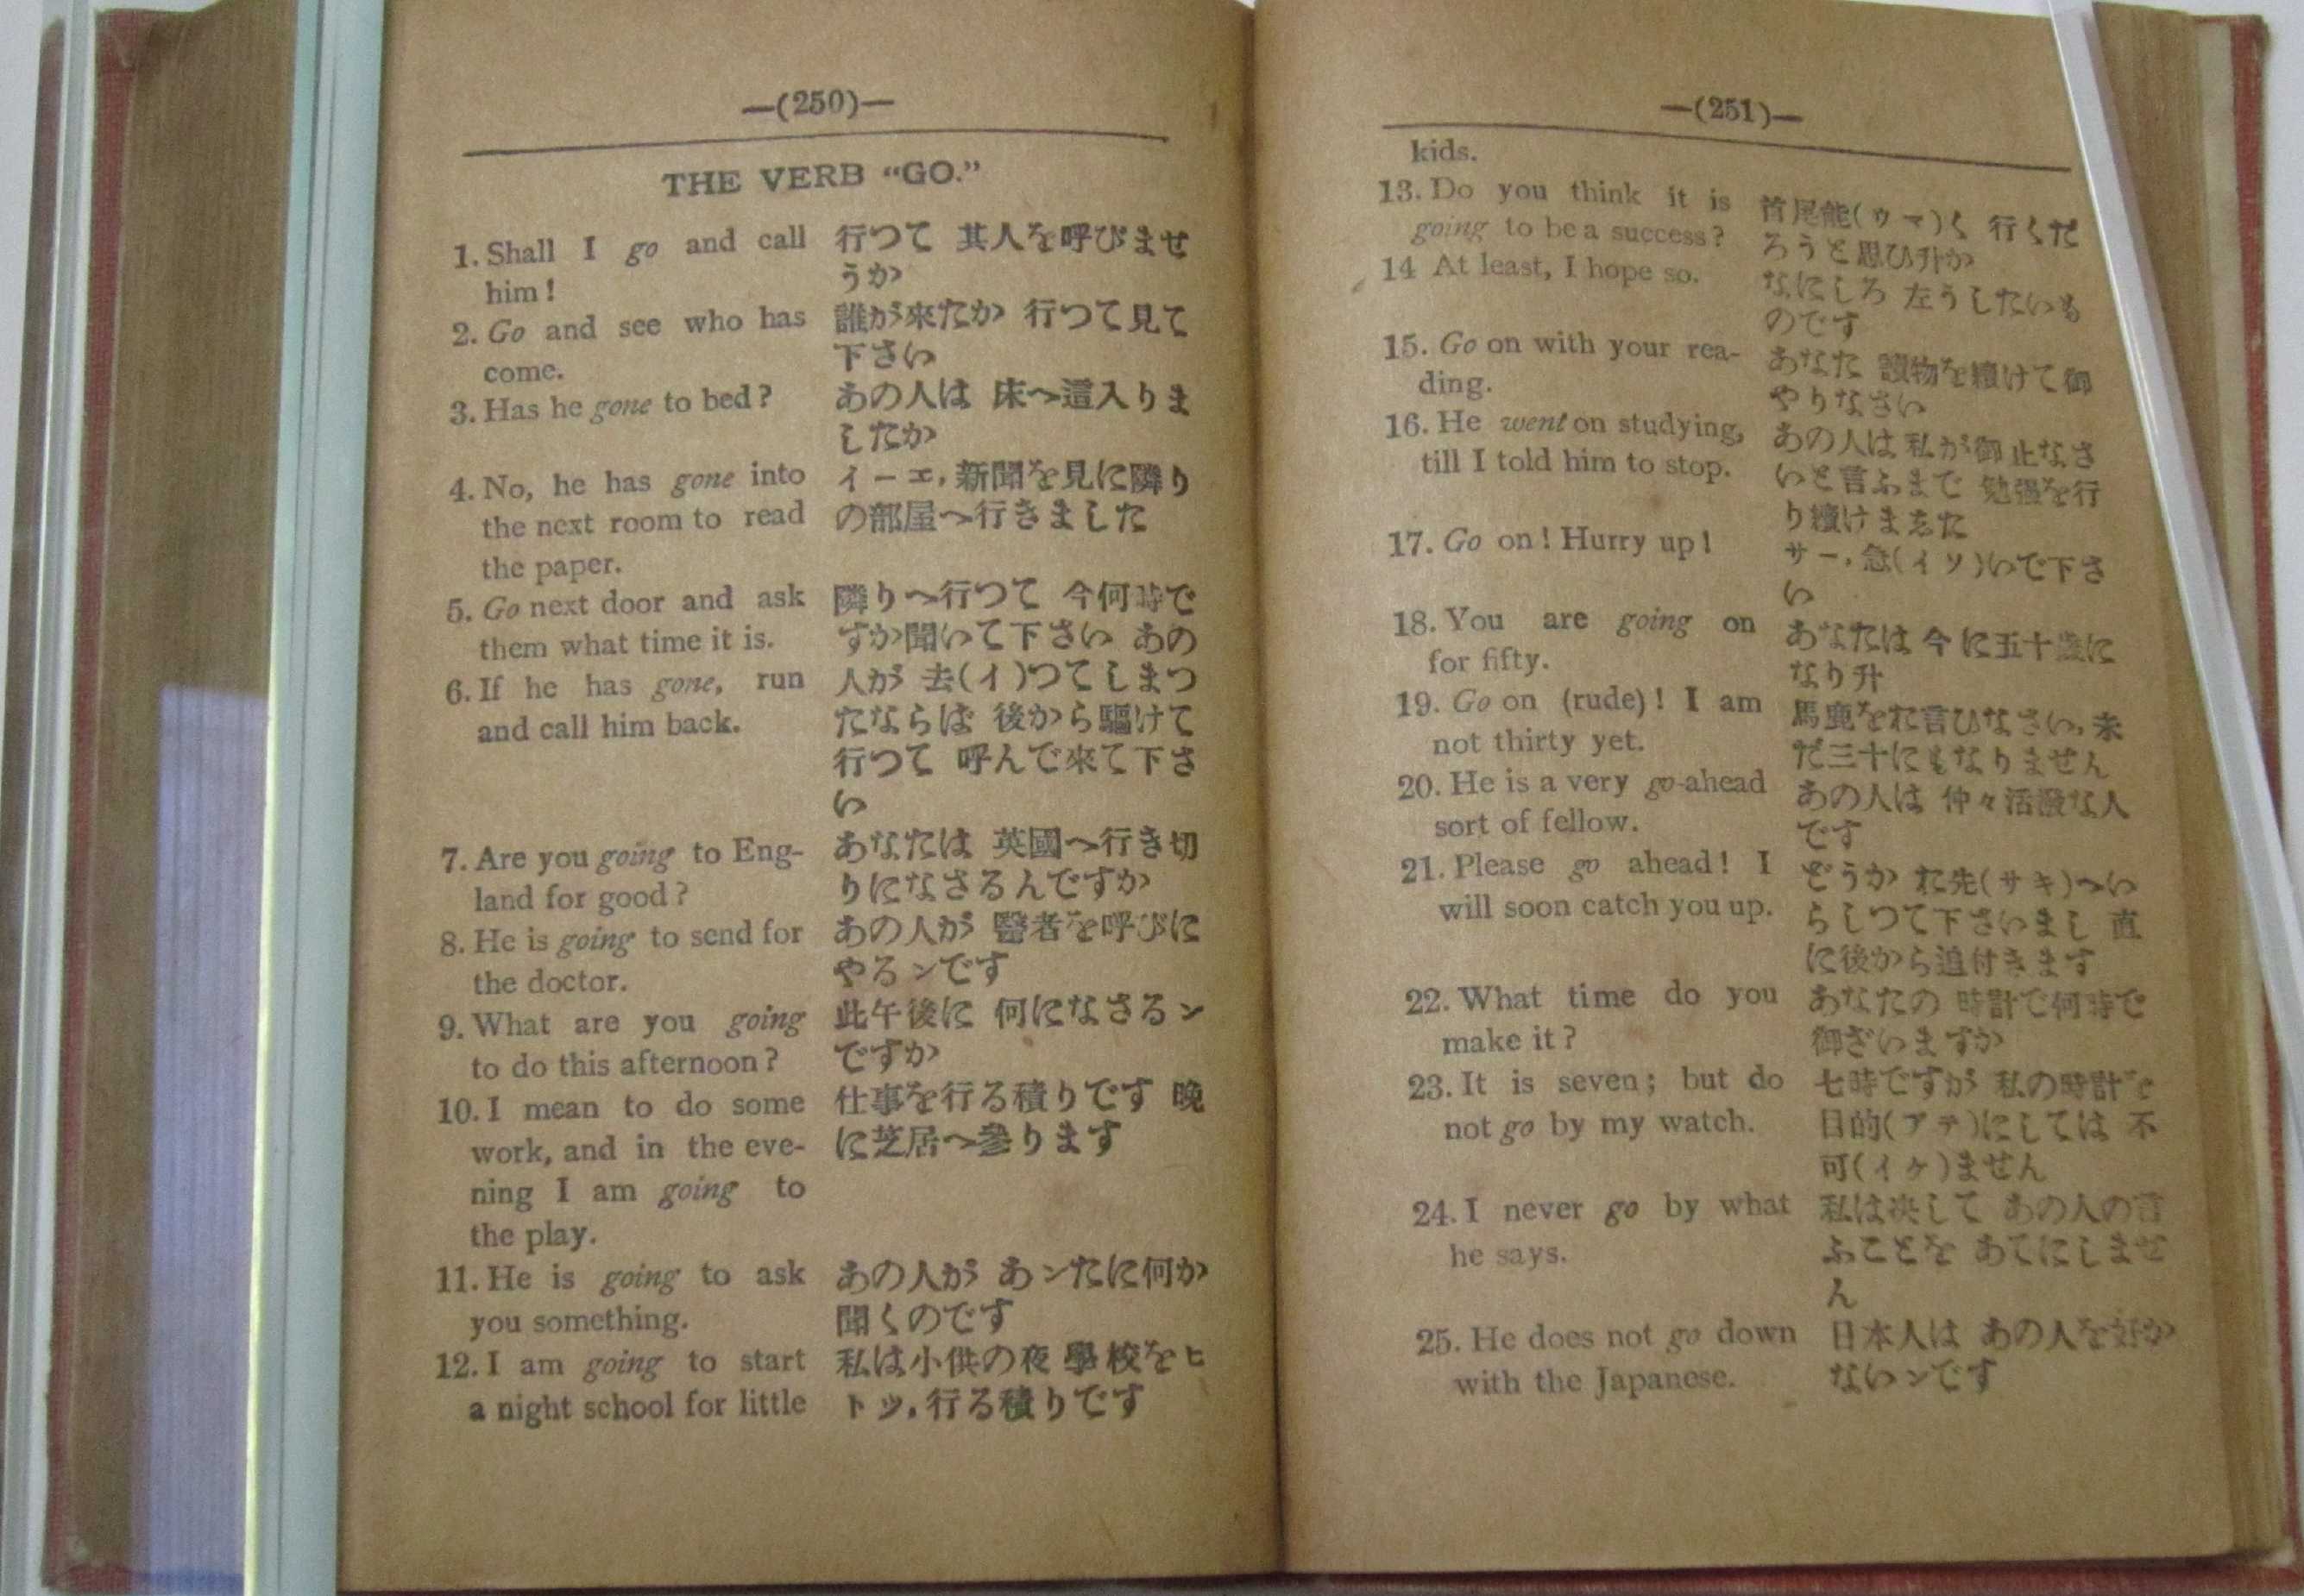 —(250)—
THE VERB “GO.”
1. Shall I go and call
him!
行つて 其人を呼びませ
うか
2. Go and see who has
come.
誰が來たか 行つて見て
下さい
3. Has he gone to bed?
あの人は 床へ這入りま
したか
4. No, he has gone into
the next room to read
the paper.
イーエ,新聞を見に隣り
の部屋へ行きました
5. Go next door and ask
them what time it is.
隣りへ行つて 今何時で
すか聞いて下さい あの
6. If he has gone, run
and call him back.
人が 去(イ)つてしまつ
たならば 後から驅けて
行つて 呼んで來て下さ
い
7. Are you going to Eng-
land for good?
あなたは 英國へ行き切
りになさるんですか
8. He is going to send for
the doctor.
あの人が 醫者を呼びに
やるンです
9. What are you going
to do this afternoon?
此午後に 何になさるン
ですか
10. I mean to do some
work, and in the eve-
ning I am going to
the play.
仕事を行る積りです 晩
に芝居へ參ります
11. He is going to ask
you something.
あの人が あンたに何か
聞くのです
12. I am going to start
a night school for little
私は小供の夜學校をヒ
トツ,行る積りです
—(251)—
kids.
13. Do you think it is
going to be a success?
首尾能(ウマ)く 行くだ
ろうと思ひ升か
14 At least, I hope so.
なにしろ 左うしたいも
のです
15. Go on with your rea-
ding.
あなた 讀物を續けて御
やりなさい
16. He went on studying,
till I told him to stop.
あの人は 私が御止なさ
いと言ふまで 勉强を行
り續けまゑた
17. Go on! Hurry up!
サー,急(イソ)いで下さ
い
18. You are going on
for fifty.
あなたは 今に五十歲に
なり升
19. Go on (rude)! I am
not thirty yet.
馬鹿をお言ひなさい,未
だ三十にもなりません
20. He is a very go-ahead
sort of fellow.
あの人は 仲々活潑な人
です
21. Please go ahead! I
will soon catch you up.
どうか お先(サキ)へい
らしつて下さいまし 直
に後から追付きます
22. What time do you
make it?
あなたの 時計で何時で
御ざいますか
23. It is seven; but do
not go by my watch.
七時ですが 私の時計を
目的(アテ)にしては 不
可(イケ)ません
24. I never go by what
he says.
私は決して あの人の言
ふことを あてにしませ
ん
25. He does not go down
with the Japanese.
日本人は あの人を好か
ないンです